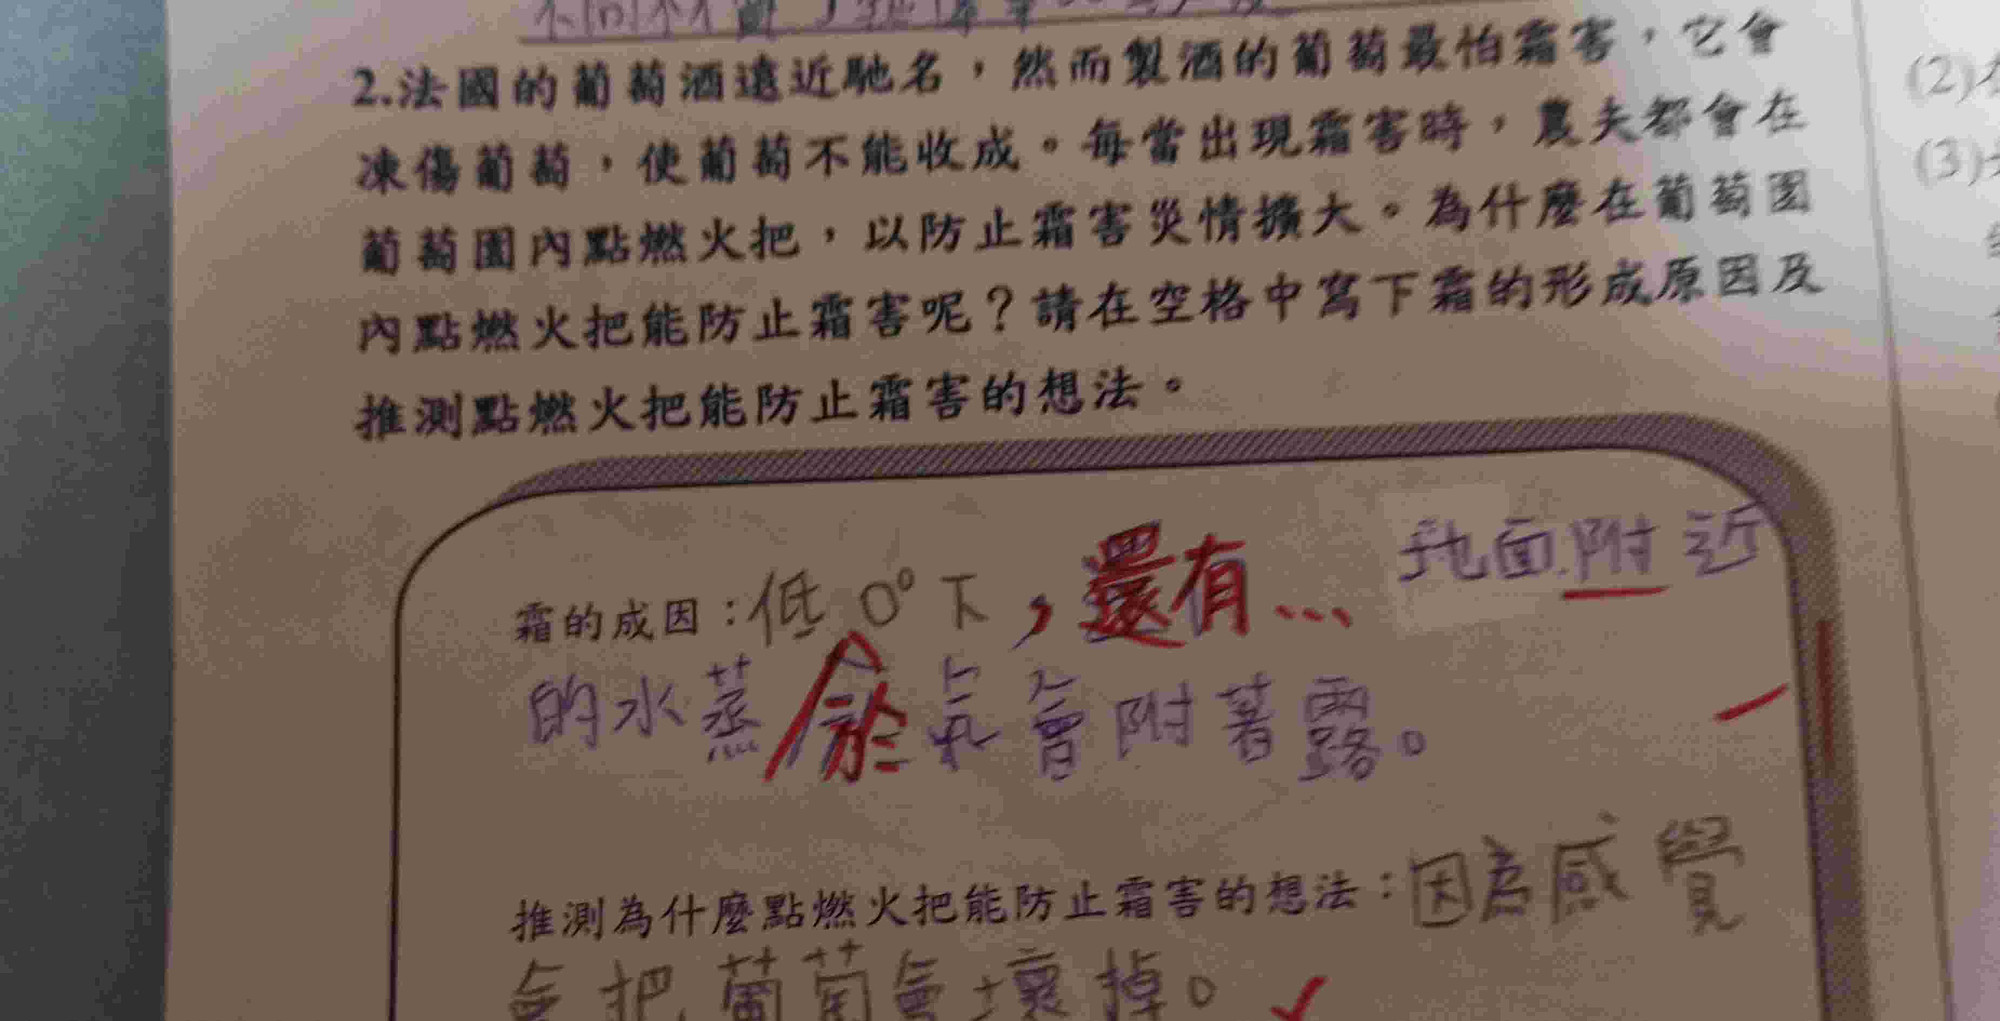 2.法國的葡萄酒遠近馳名，然而製酒的葡萄最怕霜害，它會
凍傷葡萄，使葡萄不能收成。每當出現霜害時，農夫都會在
葡萄園內點燃火把，以防止霜害災情擴大。為什麼在葡萄園
內點燃火把能防止霜害呢？請在空格中寫下霜的形成原因及
推測點燃火把能防止霜害的想法。
霜的成因：低0°下，還有… 地面附近
的水蒸於氣會附著露。
推測為什麼點燃火把能防止霜害的想法：因為感覺
會把葡萄會壞掉。
(2)
(3)